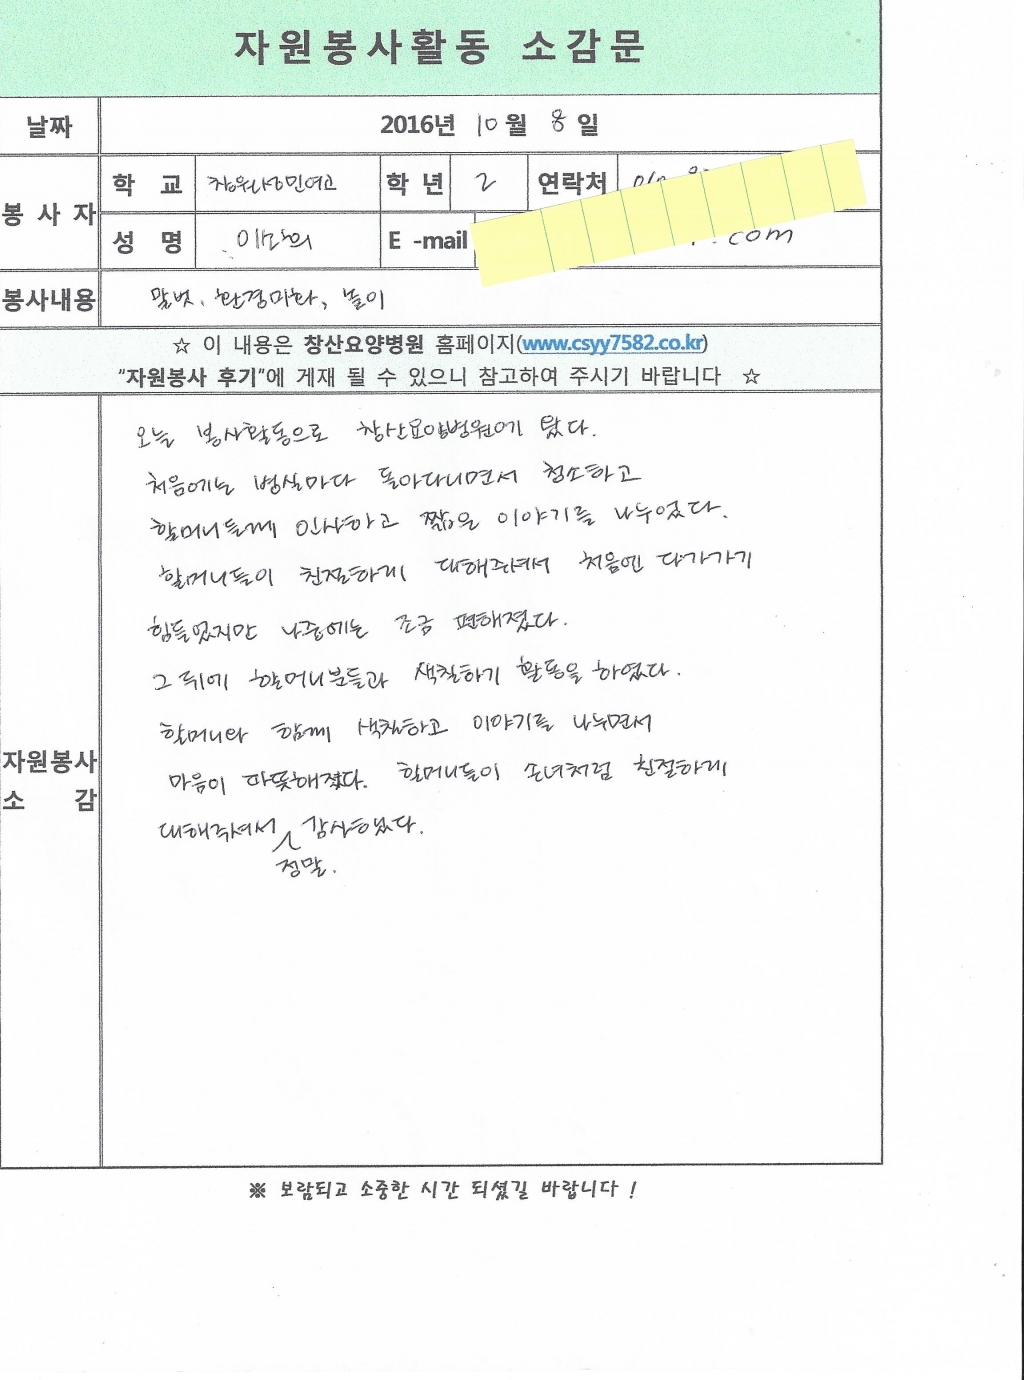 자원봉사활동 소감문
날짜 2016년 10월 8일
봉사자
학 교 창원성민여고 학년 2 연락처
성 명 E-mail .com
봉사내용 말벗, 환경미화, 놀이
☆ 이 내용은 창산요양병원 홈페이지(www.csyy7582.co.kr)
"자원봉사 후기"에 게재 될 수 있으니 참고하여 주시기 바랍니다 ☆
자원봉사
소 감
오늘 봉사활동으로 창산요양병원에 왔다.
처음에는 병실마다 돌아다니면서 청소하고
할머니들께 인사하고 짧은 이야기를 나누었다.
할머니들이 친절하게 대해주셔서 처음엔 다가가기
힘들었지만 나중에는 조금 편해졌다.
그 뒤에 할머니분들과 색칠하기 활동을 하였다.
할머니와 함께 색칠하고 이야기를 나누면서
마음이 따뜻해졌다. 할머니들이 소녀처럼 친절하게
대해주셔서 감사했다.
정말.
※ 보람되고 소중한 시간 되셨길 바랍니다 !